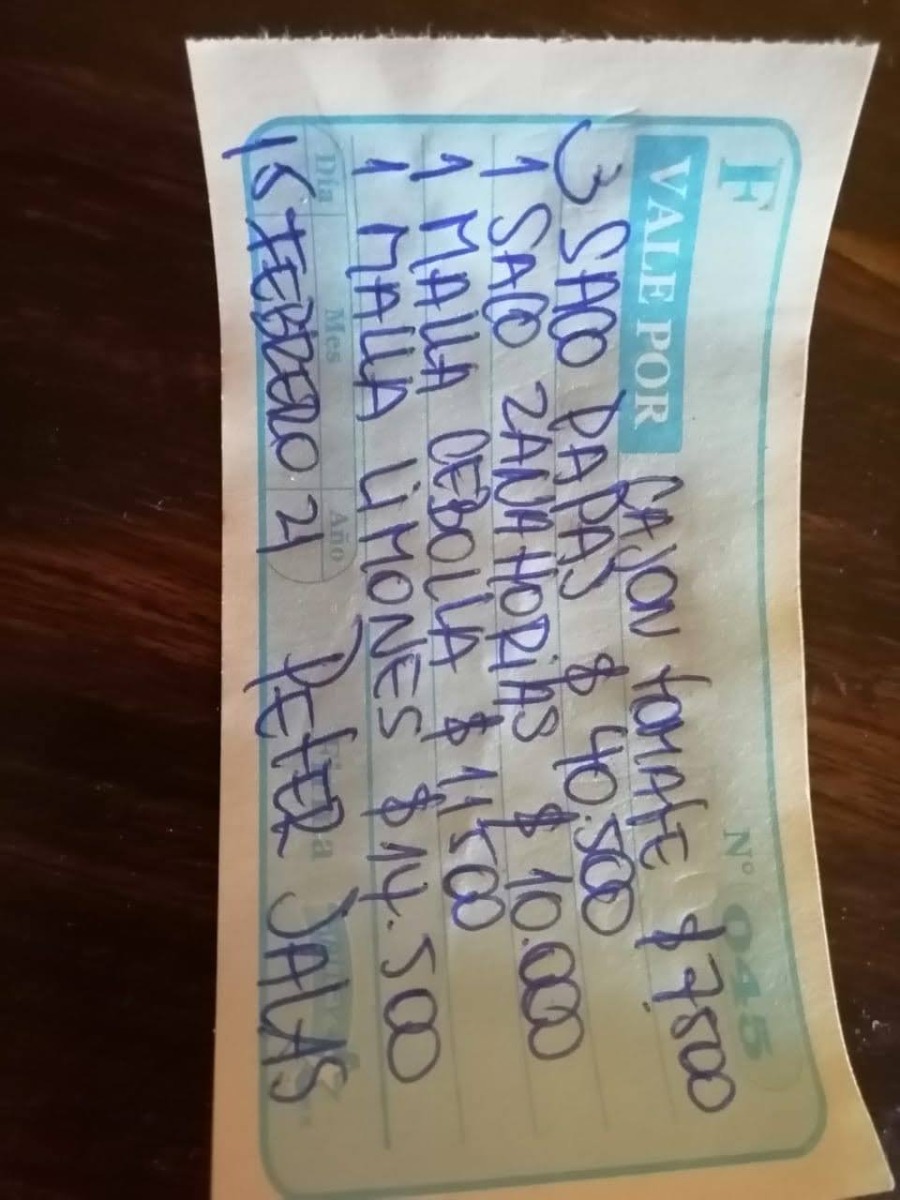 F N° 045
VALE POR CAJON TOMATE $ 7.500
3 SACO PAPAS $ 40.500
1 SACO ZANAHORIAS $ 10.000
1 MALLA CEBOLLA $ 11.500
1 MALLA LIMONES $ 14.500
Día Mes Año
15 FEBRERO 21 PETER SALAS